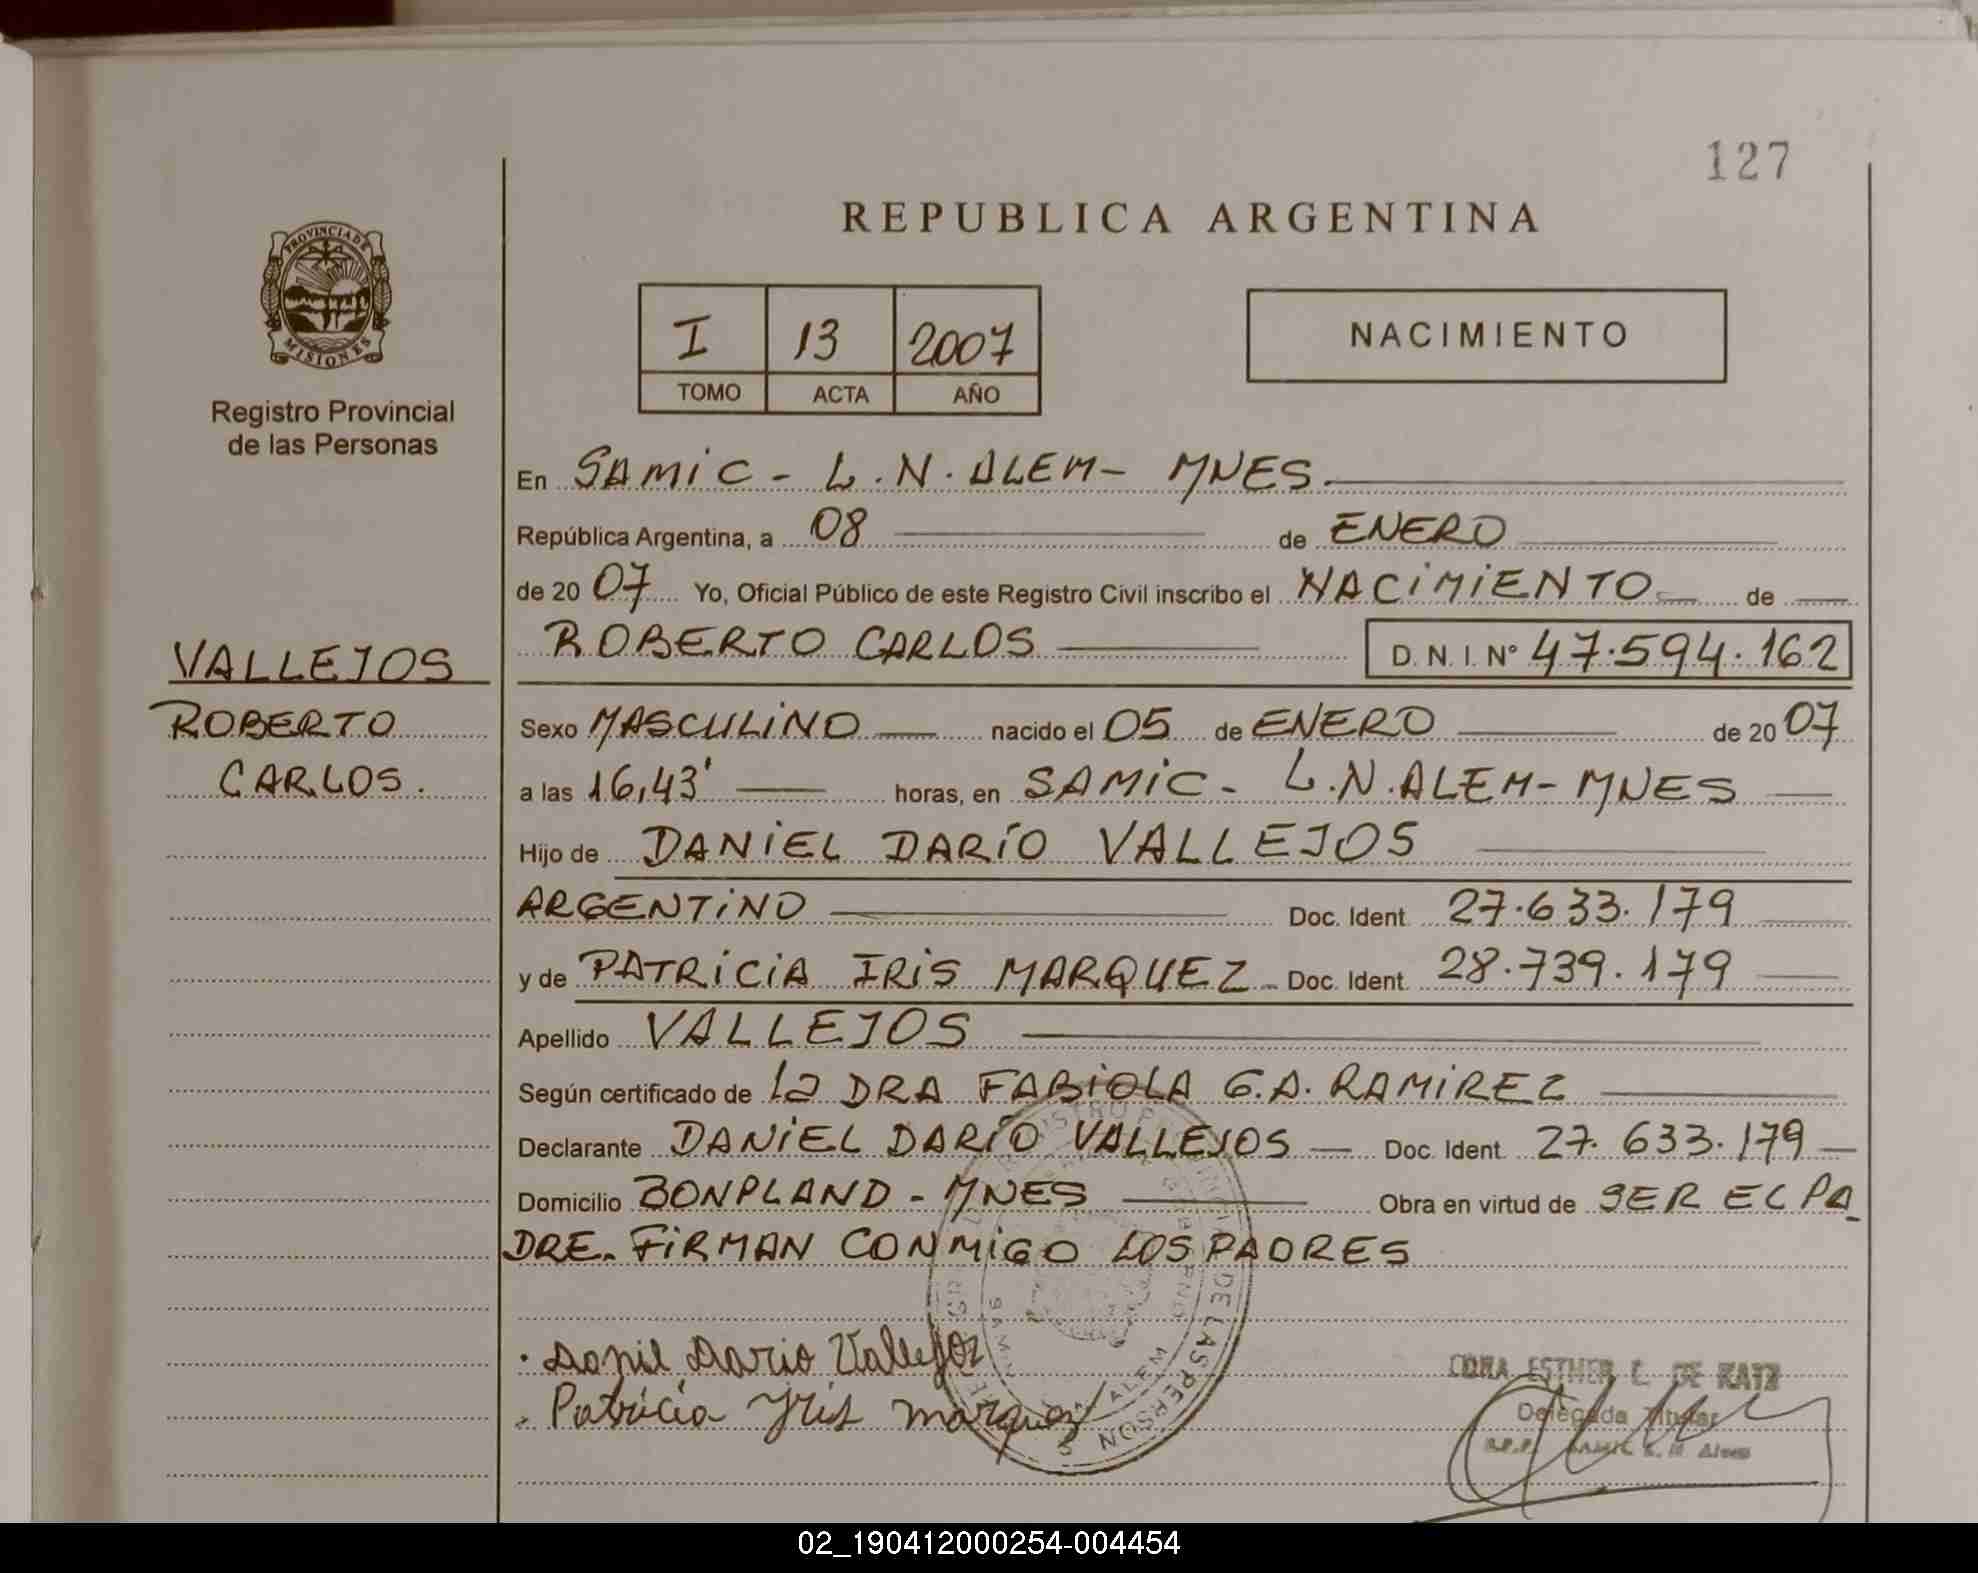 127
REPUBLICA ARGENTINA
PROVINCIA DE
MISIONES
Registro Provincial
de las Personas
I 13 2007
TOMO ACTA AÑO
NACIMIENTO
En SAMIC - L.N. ALEM - MNES
República Argentina, a 08 de ENERO
de 2007 Yo, Oficial Público de este Registro Civil inscribo el NACIMIENTO de
ROBERTO CARLOS D.N.I. N° 47.594.162
VALLEJOS
ROBERTO
CARLOS.
Sexo MASCULINO nacido el 05 de ENERO de 2007
a las 16,43' horas, en SAMIC - L.N. ALEM - MNES
Hijo de DANIEL DARÍO VALLEJOS
ARGENTINO Doc. Ident. 27.633.179
y de PATRICIA IRIS MARQUEZ - Doc. Ident. 28.739.179
Apellido VALLEJOS
Según certificado de la DRA FABIOLA G.A. RAMIREZ
Declarante DANIEL DARÍO VALLEJOS Doc. Ident. 27.633.179
Domicilio BONPLAND - MNES Obra en virtud de SER EL PA
DRE. FIRMAN CONMIGO LOS PADRES
Danil Dario Vallejoz
Patricia Yris Marquez
ESTHER L. DE KATZ
Delegada Titular
02_190412000254-004454